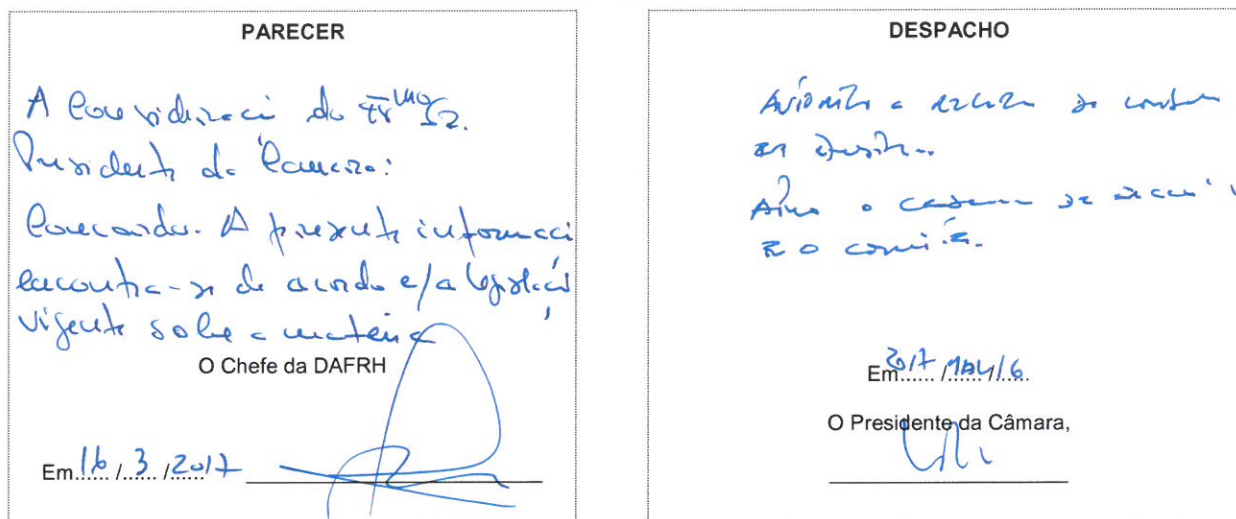 PARECER
A Consideração do Exmo Sr.
Presidente da Câmara:
Concordo. A presente informação
encontra-se de acordo c/a legislação
vigente sobre a matéria
O Chefe da DAFRH
Em 16 / 3 / 2017
DESPACHO
Autorizo a de
o se
e o
Em 2017 / MAR / 16
O Presidente da Câmara,